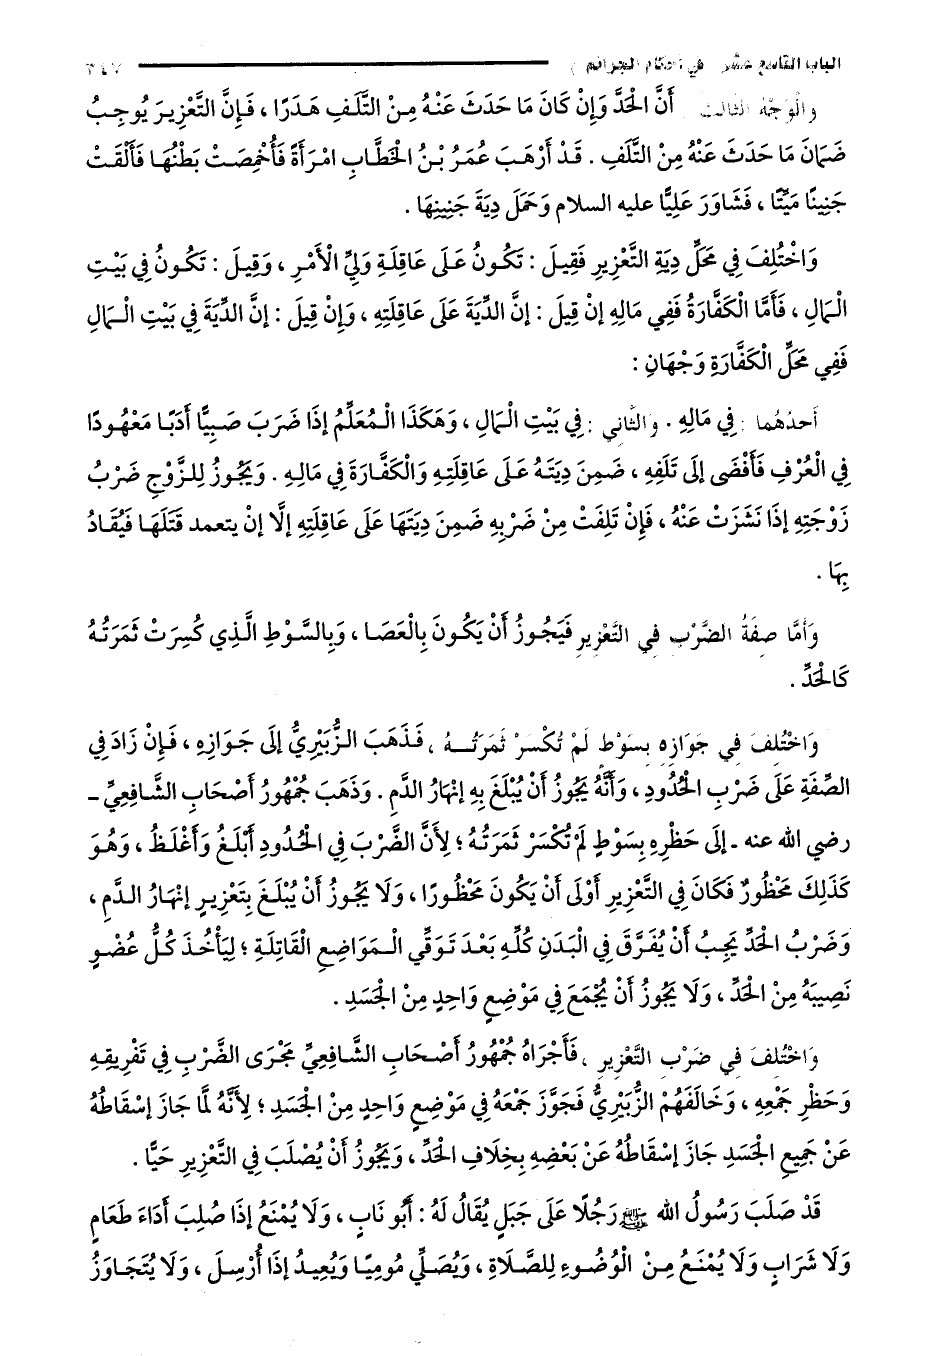 الباب التاسع عشر في أحكام الجرائم ٣٤٧
والْوَجْهُ الثَّالِثُ أَنَّ الْحَدَّ وَإِنْ كَانَ مَا حَدَثَ عَنْهُ مِنْ التَّلَفِ هَدَرًا ، فَإِنَّ التَّعْزِيرَ يُوجِبُ
ضَمَانَ مَا حَدَثَ عَنْهُ مِنْ التَّلَفِ . قَدْ أَرْهَبَ عُمَرُ بْنُ الْخَطَّابِ امْرَأَةً فَأَخْمَصَتْ بَطْنُهَا فَأَلْقَتْ
جَنِينًا مَيِّتًا ، فَشَاوَرَ عَلِيًّا عليه السلام وَحَمَلَ دِيَةَ جَنِينِهَا .
وَاخْتُلِفَ فِي مَحَلِّ دِيَةِ التَّعْزِيرِ فَقِيلَ : تَكُونُ عَلَى عَاقِلَةِ وَلِيِّ الْأَمْرِ ، وَقِيلَ : تَكُونُ فِي بَيْتِ
الْمَالِ ، فَأَمَّا الْكَفَّارَةُ فَفِي مَالِهِ إنْ قِيلَ : إنَّ الدِّيَةَ عَلَى عَاقِلَتِهِ ، وَإِنْ قِيلَ : إنَّ الدِّيَةَ فِي بَيْتِ الْمَالِ
فَفِي مَحَلِّ الْكَفَّارَةِ وَجْهَانِ :
أَحَدُهُمَا : فِي مَالِهِ . والثَّانِي : فِي بَيْتِ الْمَالِ ، وَهَكَذَا الْمُعَلِّمُ إذَا ضَرَبَ صَبِيًّا أَدَبًا مَعْهُودًا
فِي الْعُرْفِ فَأَفْضَى إلَى تَلَفِهِ ، ضَمِنَ دِيَتَهُ عَلَى عَاقِلَتِهِ وَالْكَفَّارَةَ فِي مَالِهِ . وَيَجُوزُ لِلزَّوْجِ ضَرْبُ
زَوْجَتِهِ إذَا نَشَزَتْ عَنْهُ ، فَإِنْ تَلِفَتْ مِنْ ضَرْبِهِ ضَمِنَ دِيَتَهَا عَلَى عَاقِلَتِهِ إلَّا إنْ يتعمد قَتْلَهَا فَيُقَادُ
بِهَا .
وَأَمَّا صِفَةُ الضَّرْبِ فِي التَّعْزِيرِ فَيَجُوزُ أَنْ يَكُونَ بِالْعَصَا ، وَبِالسَّوْطِ الَّذِي كُسِرَتْ ثَمَرَتُهُ
كَالْحَدِّ .
وَاخْتُلِفَ فِي جَوَازِهِ بِسَوْطٍ لَمْ تُكْسَرْ ثَمَرَتُهُ ، فَذَهَبَ الزُّبَيْرِيُّ إلَى جَوَازِهِ ، فَإِنْ زَادَ فِي
الصِّفَةِ عَلَى ضَرْبِ الْحُدُودِ ، وَأَنَّهُ يَجُوزُ أَنْ يُبْلَغَ بِهِ إنْهَارُ الدَّمِ . وَذَهَبَ جُمْهُورُ أَصْحَابِ الشَّافِعِيِّ -
رضي الله عنه - إلَى حَظْرِهِ بِسَوْطٍ لَمْ تُكْسَرْ ثَمَرَتُهُ ؛ لِأَنَّ الضَّرْبَ فِي الْحُدُودِ أَبْلَغُ وَأَغْلَظُ ، وَهُوَ
كَذَلِكَ مَحْظُورٌ فَكَانَ فِي التَّعْزِيرِ أَوْلَى أَنْ يَكُونَ مَحْظُورًا ، وَلَا يَجُوزُ أَنْ يُبْلَغَ بِتَعْزِيرٍ إنْهَارُ الدَّمِ ،
وَضَرْبُ الْحَدِّ يَجِبُ أَنْ يُفَرَّقَ فِي الْبَدَنِ كُلِّهِ بَعْدَ تَوَقِّي الْمَوَاضِعِ الْقَاتِلَةِ ؛ لِيَأْخُذَ كُلُّ عُضْوٍ
نَصِيبَهُ مِنْ الْحَدِّ ، وَلَا يَجُوزُ أَنْ يُجْمَعَ فِي مَوْضِعٍ وَاحِدٍ مِنْ الْجَسَدِ .
وَاخْتُلِفَ فِي ضَرْبِ التَّعْزِيرِ ، فَأَجْرَاهُ جُمْهُورُ أَصْحَابِ الشَّافِعِيِّ مَجْرَى الضَّرْبِ فِي تَفْرِيقِهِ
وَحَظْرِ جَمْعِهِ ، وَخَالَفَهُمْ الزُّبَيْرِيُّ فَجَوَّزَ جَمْعَهُ فِي مَوْضِعٍ وَاحِدٍ مِنْ الْجَسَدِ ؛ لِأَنَّهُ لَمَّا جَازَ إسْقَاطُهُ
عَنْ جَمِيعِ الْجَسَدِ جَازَ إسْقَاطُهُ عَنْ بَعْضِهِ بِخِلَافِ الْحَدِّ ، وَيَجُوزُ أَنْ يُصْلَبَ فِي التَّعْزِيرِ حَيًّا .
قَدْ صَلَبَ رَسُولُ الله ﷺ رَجُلًا عَلَى جَبَلٍ يُقَالُ لَهُ : أَبُو نَابٍ ، وَلَا يُمْنَعُ إذَا صُلِبَ أَدَاءَ طَعَامٍ
وَلَا شَرَابٍ وَلَا يُمْنَعُ مِنْ الْوُضُوءِ لِلصَّلَاةِ ، وَيُصَلِّي مُومِيًا وَيُعِيدُ إذَا أُرْسِلَ ، وَلَا يُتَجَاوَزُ